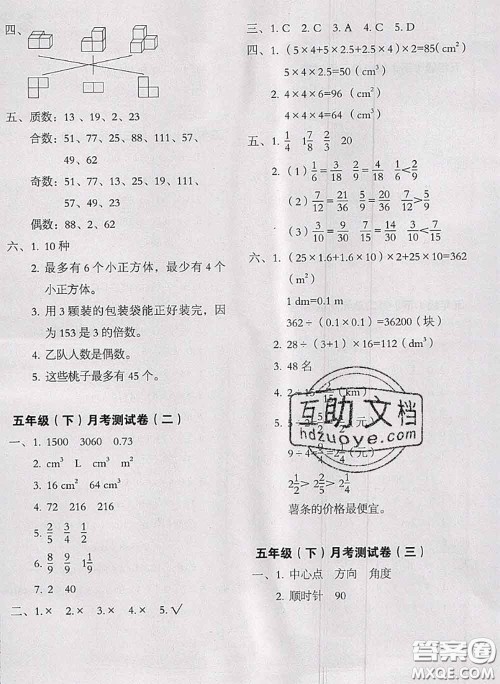 四、
五、质数：13、19、2、23
合数：51、77、25、88、111、57、
49、62
奇数：51、77、13、25、19、111、
57、49、23
偶数：88、2、62
六、1. 10 种
2. 最多有 6 个小正方体，最少有 4 个
小正方体。
3. 用 3 颗装的包装袋能正好装完，因
为 153 是 3 的倍数。
4. 乙队人数是偶数。
5. 这些桃子最多有 45 个。
五年级（下）月考测试卷（二）
一、1. 1500 3060 0.73
2. cm³ L cm³ m³
3. 16 cm² 64 cm³
5. 2/5 3/4 2/9
6. 8/9 9/9 1 1/9
7. 2 40
二、1.× 2.× 3.× 4.× 5.√
三、1. C 2. C 3. A 4. C 5. D
四、1.（5×4+5×2.5+2.5×4）×2=85（cm²）
5×4×2.5=50（cm³）
2. 4×4×6=96（cm²）
4×4×4=64（cm³）
五、1. 1/4 1 7/8 2/3 20
2.（1）1/6=3/18 2/9=4/18 1/6<2/9
（2）7/12=21/36 5/9=20/36 7/12>5/9
（3）3/10=9/30 7/15=14/30 3/10<7/15
六、1.（25×1.6+1.6×10）×2+25×10=362
（m²）
1 dm=0.1 m
362÷（0.1×0.1）=36200（块）
2. 28÷（3+1）×16=112（dm²）
3. 48 名
（km）
（元）
（元）
2 1/2>2 1/4
薯条的价格最便宜。
五年级（下）月考测试卷（三）
一、1. 中心点 方向 角度
2. 顺时针 90
互助文档
hdzuoye.com
答案圈
MXQE.COM